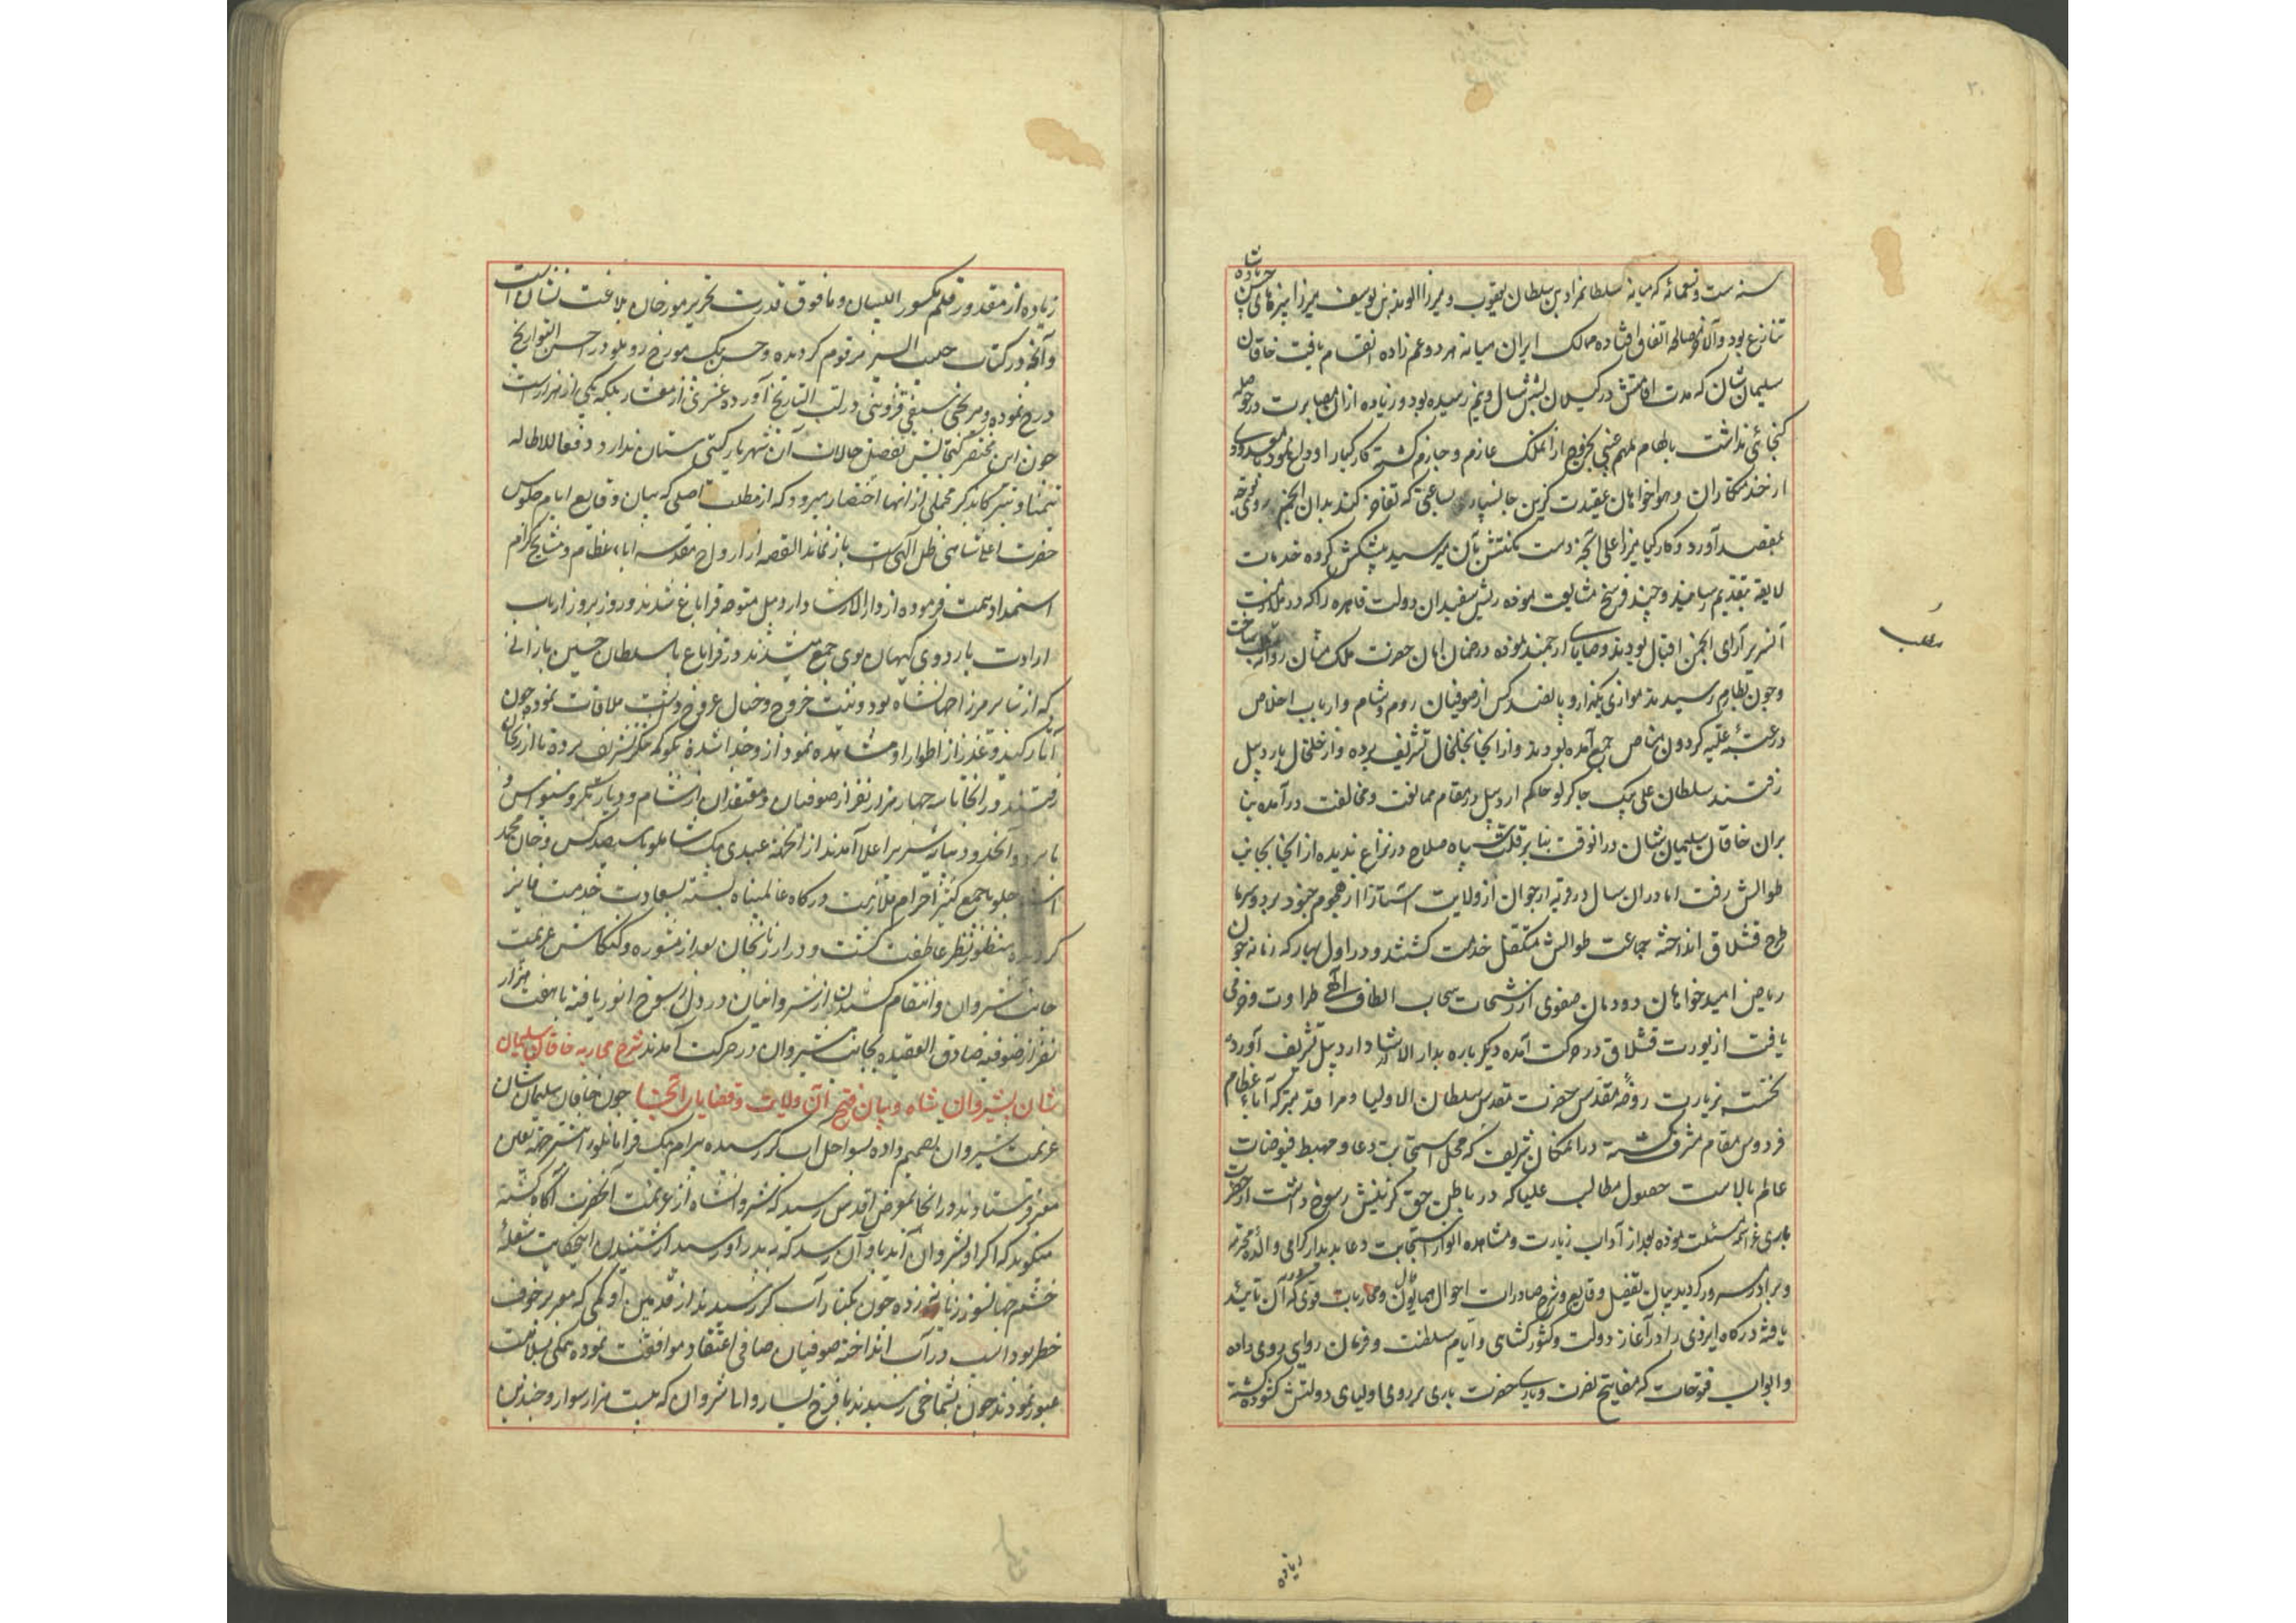 ۳۰
سنه ست و تسعمائه که میانه سلطانمراد بن سلطان یعقوب و میرزا الوند بن یوسف میرزا نبیرهای حسن پادشاه
تنازع بود و آلا بمصالحه اتفاق افتاده ممالک ایران میانه هر دو عم زاده انقسام یافت خاقان
سلیمان شان که مدت اقامتش در کیلان بشش سال و نیم رسیده بود و زیاده ازان مصابرت در حوصله
کنجائی نداشت بالهام ملهم غیبی بخروج از انملک عازم و جازم کشته کارکیا را وداع نمود با معدودی
از خدمتکاران و هواخواهان عقیدت کزین جانسپار بساعتی که تفاخر کند بدان انجم روی توجه
بمقصد آورد و کارکیا میرزا علی آنچه دست مکنتش بآن میرسید پیشکش کرده خدمات
لایقه بتقدیم رسانید و چند فرسخ مشایعت نموده ریش سفیدان دولت قاهره را که در ملازمت
آن سریر آرای انجمن اقبال بودند وصایای ارجمند نموده در ضمان امان حضرت ملک منان روانه ساخت
مطلب
و چون بطارم رسیدند موازی یکهزار و پانصد کس از صوفیان روم و شام و ارباب اخلاص
در عتبه علیه کردون مناص جمع آمده بودند و از انجا بخلخال تشریف برده و از خلخال باردبیل
رفتند سلطان علی بیک جاکرلو حاکم اردبیل در مقام ممانعت و مخالفت در آمده بنا
بران خاقان سلیمان شان درانوقت بنا بر قلت سپاه صلاح در نزاع ندیده از انجا بجانب
طوالش رفت اما دران سال در قریه ارجوان از ولایت استارا از هجوم جنود برد و سرما
طرح قشلاق انداخته جماعت طوالش متکفل خدمت کشتند و در اول بهار که زمانه چون
ریاض امید خواهان دودمان صفوی از رشحات سحاب الطاف آلهی طراوت و خرمی
یافت از یورت قشلاق در حرکت آمده دیکر باره بدار الارشاد اردبیل تشریف آورده
نخست بزیارت روضه مقدس حضرت مقدس سلطان الاولیا و مراقد متبرکه آباء عظام
فردوس مقام مشرف کشته در انمکان شریف که محل استجابت دعا و مهبط فیوضات
عالم بالاست حصول مطالب علیا که در باطن حق کزینش رسوخ داشت از حضرت
باری عز اسمه مسئلت نموده بعد از آداب زیارت و مشاهده انوار استجابت دعا بدیدار کرامی والده محترمه
و برادر مسرور کردید بیان تفصیل وقایع و شرح صادرات احوال همایون و محاربات قوی که آن تائید
یافته درکاه ایزدی را در آغاز دولت و کشور کشائی و ایام سلطنت و فرمان روایی روی داده
و ابواب فتوحات که مفاتیح نصرت و یاری حضرت باری بر روی اولیای دولتش کشوده کشته
زیاده
زیاده از مقدور قلم مکسور اللسان و مافوق قدرت تحریر مورخان بلاغت نشان است
و آنچه در کتاب حبیب السیر مرقوم کردیده و حسن بیک مورخ روملو در احسن التواریخ
درج نموده و میر یحیی سیفی قزوینی در لب التاریخ آورده عشری از معشار بلکه یکی از هزار است
چون این مختصر کنجایش تفصیل حالات آن شهریار کیتی ستان ندارد و دفعا للاطاله
تیمنا و تبرکا بذکر مجملی از انها اختصار میرود که از مطلب اصلی که بیان وقایع ایام جلوس
حضرت اعلی شاهی ظل الهی است باز نماند القصه از ارواح مقدسه اباء عظام و مشایخ کرام
استمداد همت فرموده از دار الارشاد اردبیل متوجه قراباغ شدند و روز بروز ارباب
ارادت باردوی کیهان پوی جمع میشدند و در قراباغ با سلطان حسین بارانی
که از نبایر میرزا جهانشاه بود و نیت خروج و خیال عروج داشت ملاقات نموده چون
آثار کید و غدر از اطوار او مشاهده نمود از و جدا شده بکوکچه تنکز تشریف برده تا ارزنجان
رفتند و در انجا تا سه چهار هزار نفر از صوفیان و معتقدان از شام و دیار بکر و سیواس و
بابرد و آنحدود بپای سریر اعلا آمدند از آنجمله عبدی بیک شاملو با سیصد کس و خان محمد
استاجلو با جمع کثیر احرام ملازمت درکاه عالمپناه بسته بسعادت خدمت فایز
کردیده منظور نظر عاطفت کشت و در ارزنجان بعد از مشوره و کنکاش عزیمت
جانب شروان و انتقام کشیدن از شروانیان در دل رسوخ انور یافته با هفت هزار
نفر از صوفیه صادق العقیده بجانب شیروان در حرکت آمدند شرح محاربه خاقان سلیمان
شان بشیروان شاه و بیان فتح آن ولایت و قضایای آنجا چون خاقان سلیمان شان
عزیمت شیروان تصمیم داده بسواحل آب کر رسیده بیرام بیک قرامانلو را بتشرجه تعیین
معبر فرستادند و در انجا بعرض اقدس رسید که شروانشاه از عزیمت آنحضرت آکاه کشته
میکوید که اکر او بشروان آید باو آن رسد که بپدر او رسید از شنیدن اینحکایت شعله
خشم جهانسوز زبانه زده چون بکنار آب کر رسیدند از قدمین او یکی که معبر خوف
خطر بود اسب در آب انداخته صوفیان صافی اعتقاد موافقت نموده همکی بسلامت
عبور نمودند چون بشماخی رسیدند با فرخ یسار والی شروان که بیست هزار سوار و چندین